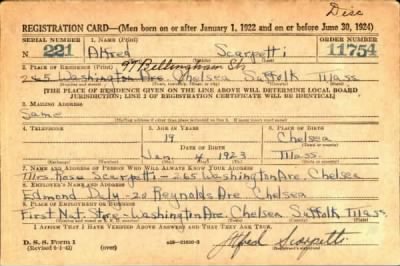 Disc
REGISTRATION CARD—(Men born on or after January 1, 1922 and on or before June 30, 1924)
SERIAL NUMBER 1. NAME (Print) ORDER NUMBER
N 221 Alfred Scarpetti 11754
2. PLACE OF RESIDENCE (Print) 97 Bellingham St
265 Washington Ave. Chelsea Suffolk Mass
[THE PLACE OF RESIDENCE GIVEN ON THE LINE ABOVE WILL DETERMINE LOCAL BOARD
JURISDICTION; LINE 2 OF REGISTRATION CERTIFICATE WILL BE IDENTICAL]
3. MAILING ADDRESS
Same
[Mailing address if other than place indicated on line 2. If same insert word same]
4. TELEPHONE 5. AGE IN YEARS 6. PLACE OF BIRTH
19 Chelsea
DATE OF BIRTH
Jan 4 1923 Mass.
7. NAME AND ADDRESS OF PERSON WHO WILL ALWAYS KNOW YOUR ADDRESS
Mrs. Rose Scarpetti - 265 Washington Ave. Chelsea
8. EMPLOYER'S NAME AND ADDRESS
Edmond Daly - 20 Reynolds Ave. Chelsea
9. PLACE OF EMPLOYMENT OR BUSINESS
First Nat. Store - Washington Ave. Chelsea Suffolk Mass.
I AFFIRM THAT I HAVE VERIFIED ABOVE ANSWERS AND THAT THEY ARE TRUE.
D. S. S. Form 1
(Revised 6-1-42) (over) Alfred Scarpetti